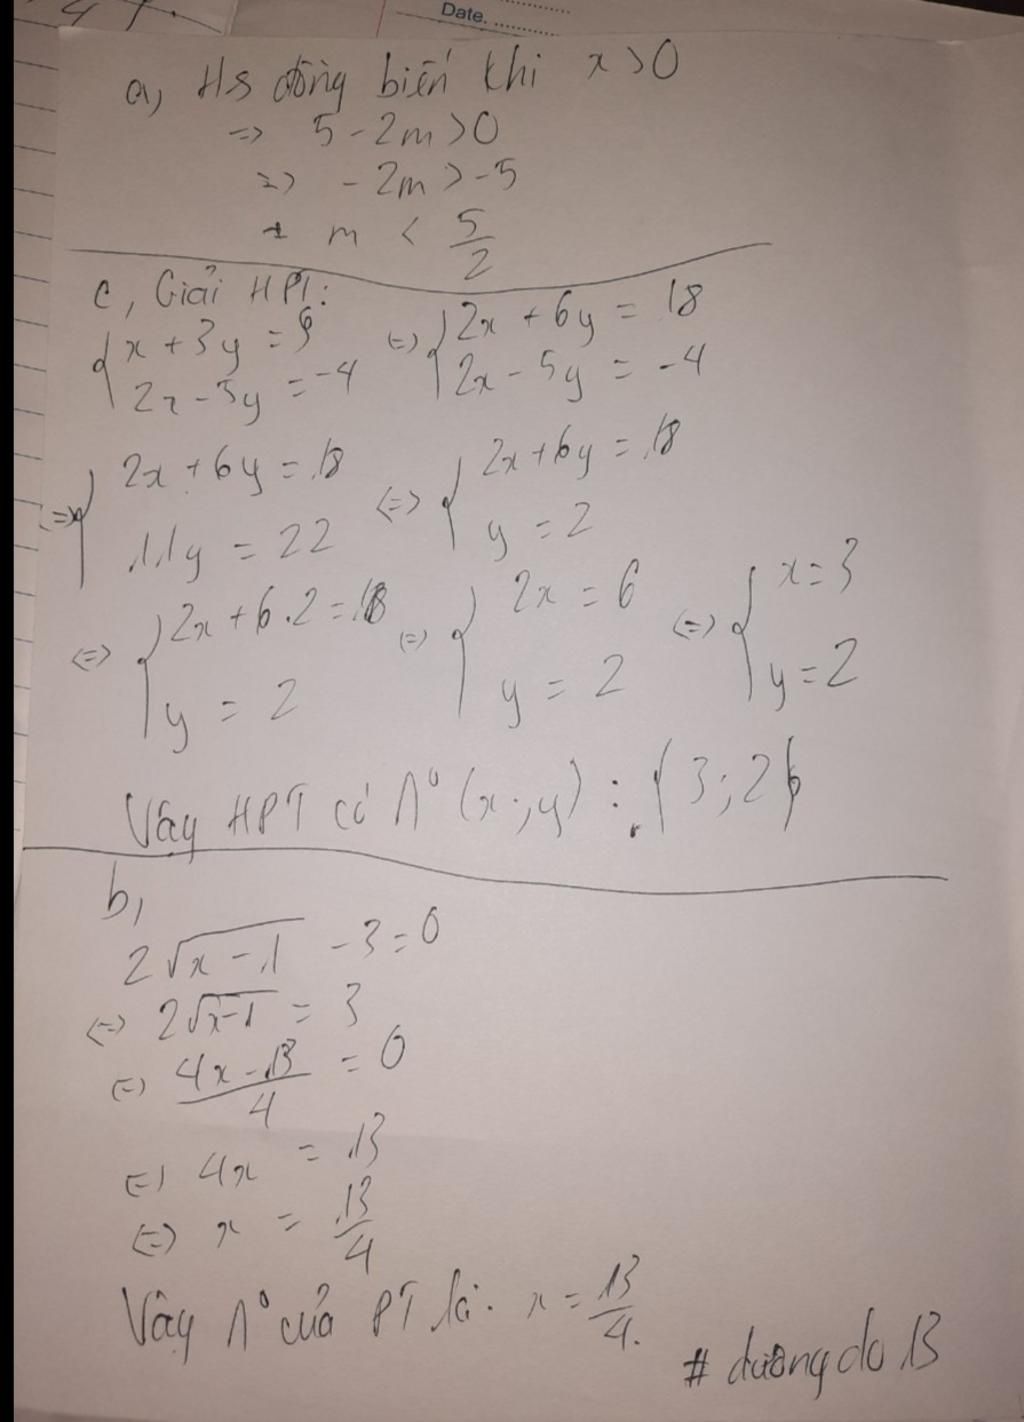 Date.
a, Hs đồng biến khi x > 0
=> 5 - 2m > 0
=> - 2m > -5
m < 5/2
c, Giải HPT:
{ x + 3y = 9 <=> { 2x + 6y = 18
2x - 5y = -4 2x - 5y = -4
<=> { 2x + 6y = 18 <=> { 2x + 6y = 18
11y = 22 y = 2
<=> { 2x + 6.2 = 18 <=> { 2x = 6 <=> { x = 3
y = 2 y = 2 y = 2
Vậy HPT có n° (x;y) : {3;2}
b,
2√x-1 - 3 = 0
<=> 2√x-1 = 3
<=> 4x - 13 / 4 = 0
<=> 4x = 13
<=> x = 13/4
Vậy n° của PT là. x = 13/4.
# duongdo 13